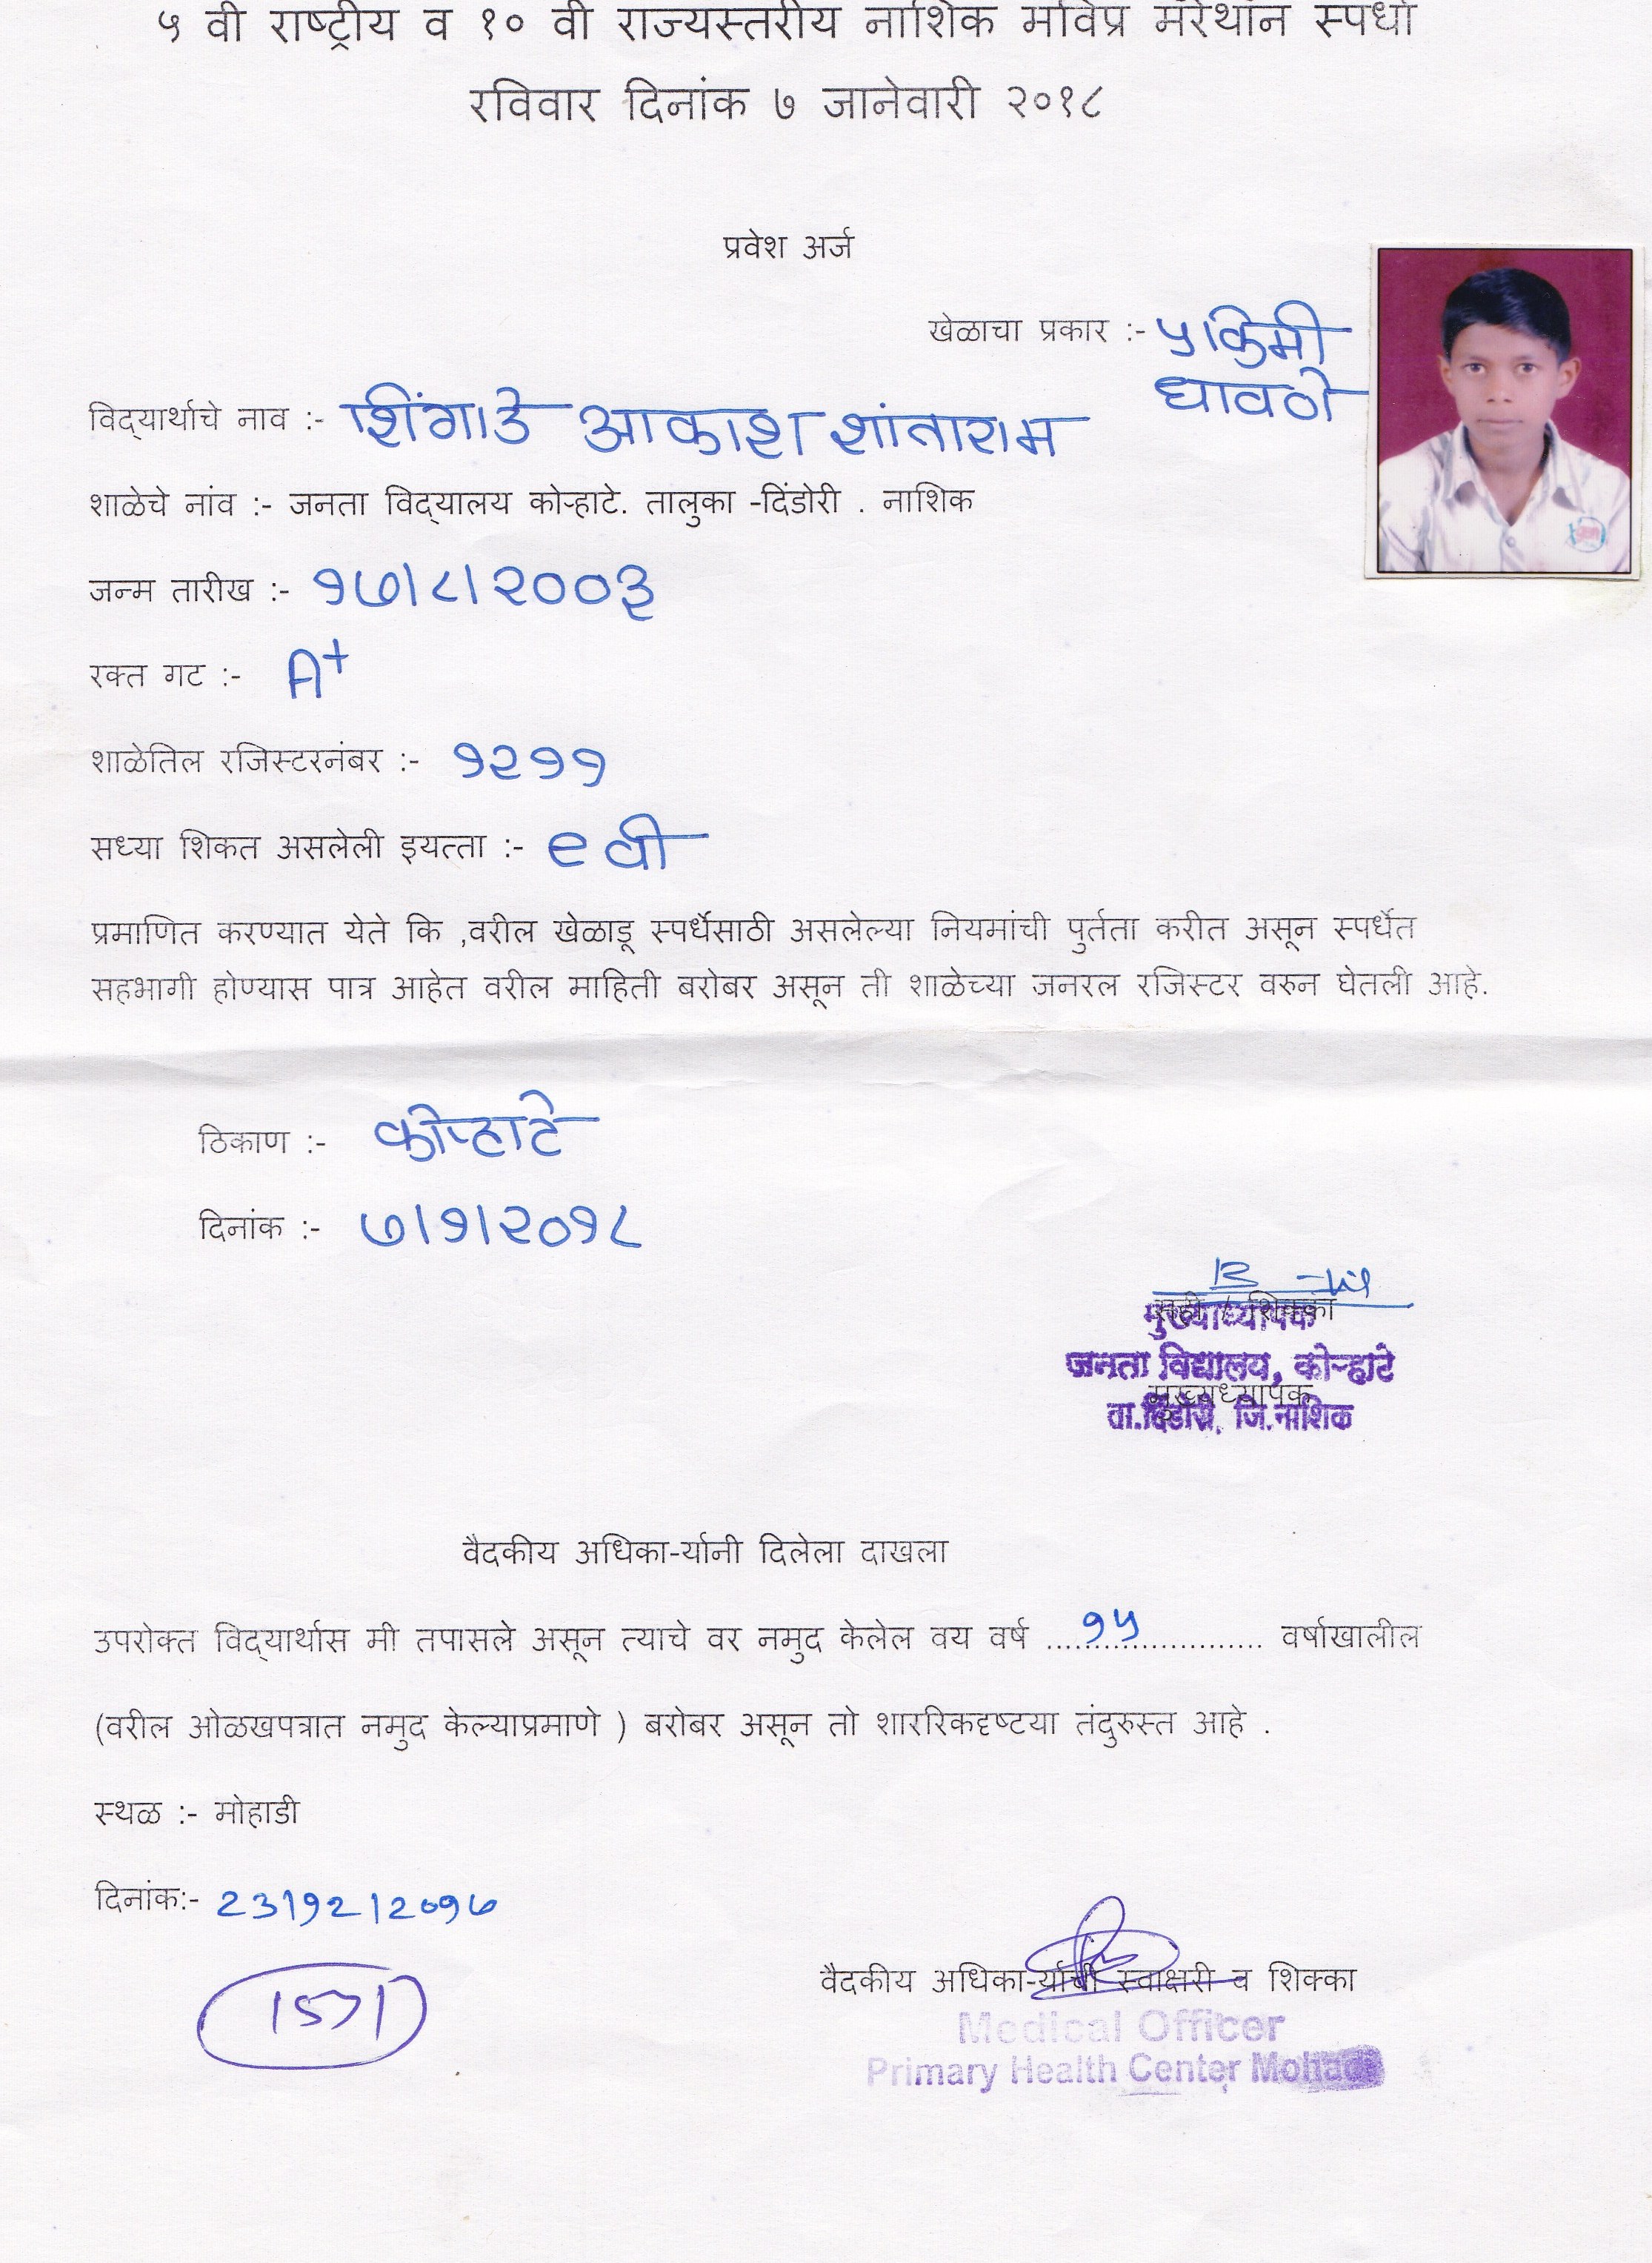 ५ वी राष्ट्रीय व १० वी राज्यस्तरीय नाशिक मविप्र मॅरेथॉन स्पर्धा
रविवार दिनांक ७ जानेवारी २०१८
प्रवेश अर्ज
खेळाचा प्रकार :- ५ किमी
धावणे
विद्‌यार्थाचे नाव :- शिंगाडे आकाश शांताराम
शाळेचे नांव :- जनता विद्‌यालय कोऱ्हाटे. तालुका -दिंडोरी . नाशिक
जन्म तारीख :- १७/८/२००३
रक्त गट :- A+
शाळेतिल रजिस्टरनंबर :- १२११
सध्या शिकत असलेली इयत्ता :- ९ वी
प्रमाणित करण्यात येते कि ,वरील खेळाडू स्पर्धेसाठी असलेल्या नियमांची पुर्तता करीत असून स्पर्धेत
सहभागी होण्यास पात्र आहेत वरील माहिती बरोबर असून ती शाळेच्या जनरल रजिस्टर वरुन घेतली आहे.
ठिकाण :- कोऱ्हाटे
दिनांक :- ७/१/२०१८
सही / शिक्का
मुख्याध्यापक
जनता विद्यालय, कोऱ्हाटे
मुख्यध्यापक
ता.दिंडोरी, जि.नाशिक
वैदकीय अधिका-र्यानी दिलेला दाखला
उपरोक्त विद्‌यार्थास मी तपासले असून त्याचे वर नमुद केलेल वय वर्ष ....१५.... वर्षाखालील
(वरील ओळखपत्रात नमुद केल्याप्रमाणे ) बरोबर असून तो शाररिकदृष्टया तंदुरुस्त आहे .
स्थळ :- मोहाडी
दिनांक:- 23/१2/2०१७
वैदकीय अधिका-र्याची स्वाक्षरी व शिक्का
Medical Officer
Primary Health Center Mohadi